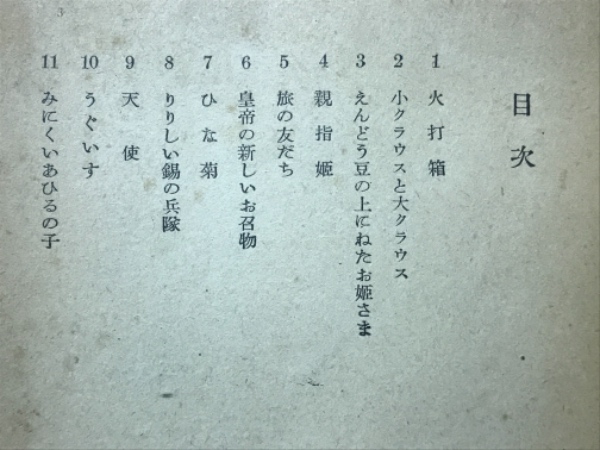 目次
1 火打箱
2 小クラウスと大クラウス
3 えんどう豆の上にねたお姫さま
4 親指姫
5 旅の友だち
6 皇帝の新しいお召物
7 ひな菊
8 りりしい錫の兵隊
9 天使
10 うぐいす
11 みにくいあひるの子